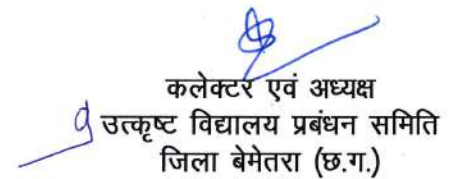 कलेक्टर एवं अध्यक्ष
उत्कृष्ट विद्यालय प्रबंधन समिति
जिला बेमेतरा (छ.ग.)